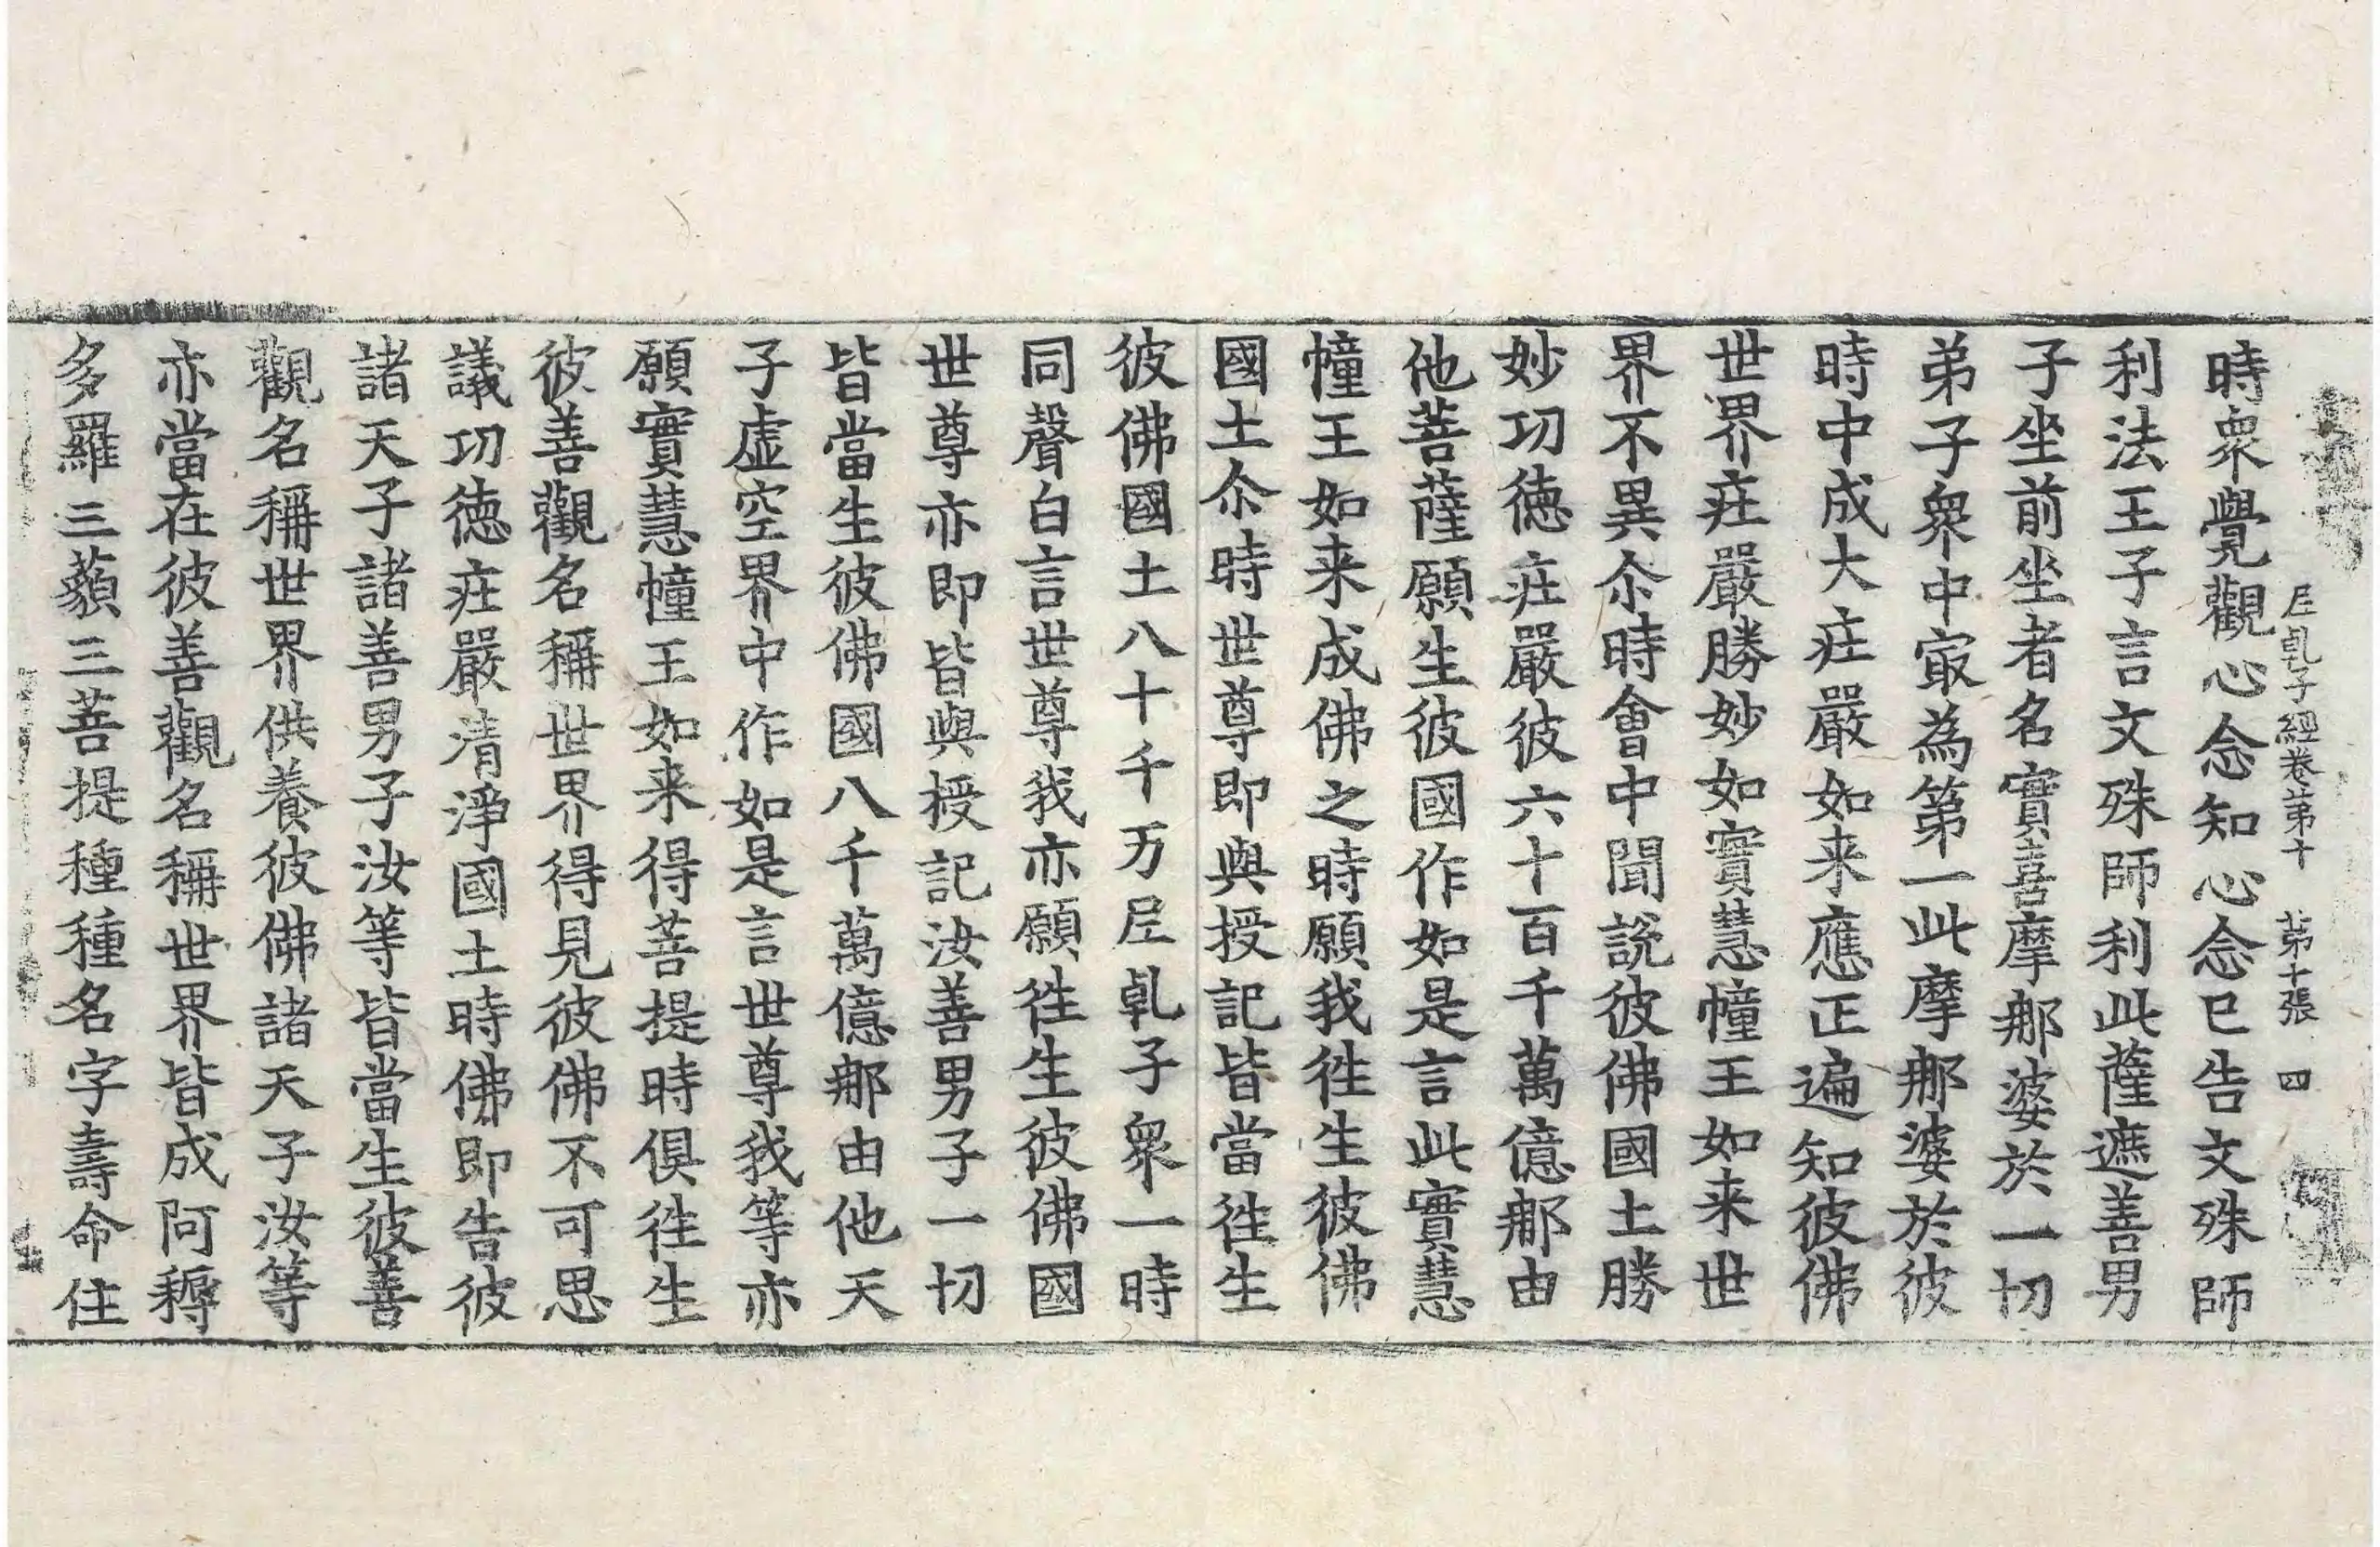 尼乹子經卷第十　苐十張　四
時衆覺觀心念知心念已告文殊師
利法王子言文殊師利此薩遮善男
子坐前坐者名實喜摩那婆於一切
弟子衆中㝡為第一此摩那婆於彼
時中成大庄嚴如来應正遍知彼佛
世界庄嚴勝妙如實慧幢王如来世
界不異尒時會中聞說彼佛國土勝
妙功徳庄嚴彼六十百千萬億那由
他菩薩願生彼國作如是言此實慧
幢王如来成佛之時願我徃生彼佛
國土尒時世尊即與授記皆當徃生
彼佛國土八十千万尼乹子衆一時
同聲白言世尊我亦願徃生彼佛國
世尊亦即皆與授記汝善男子一切
皆當生彼佛國八千萬億那由他天
子虚空界中作如是言世尊我等亦
願實慧幢王如来得菩提時俱徃生
彼善觀名稱世界得見彼佛不可思
議功徳庄嚴清淨國土時佛即告彼
諸天子諸善男子汝等皆當生彼善
觀名稱世界供養彼佛諸天子汝等
亦當在彼善觀名稱世界皆成阿耨
多羅三藐三菩提種種名字壽命住